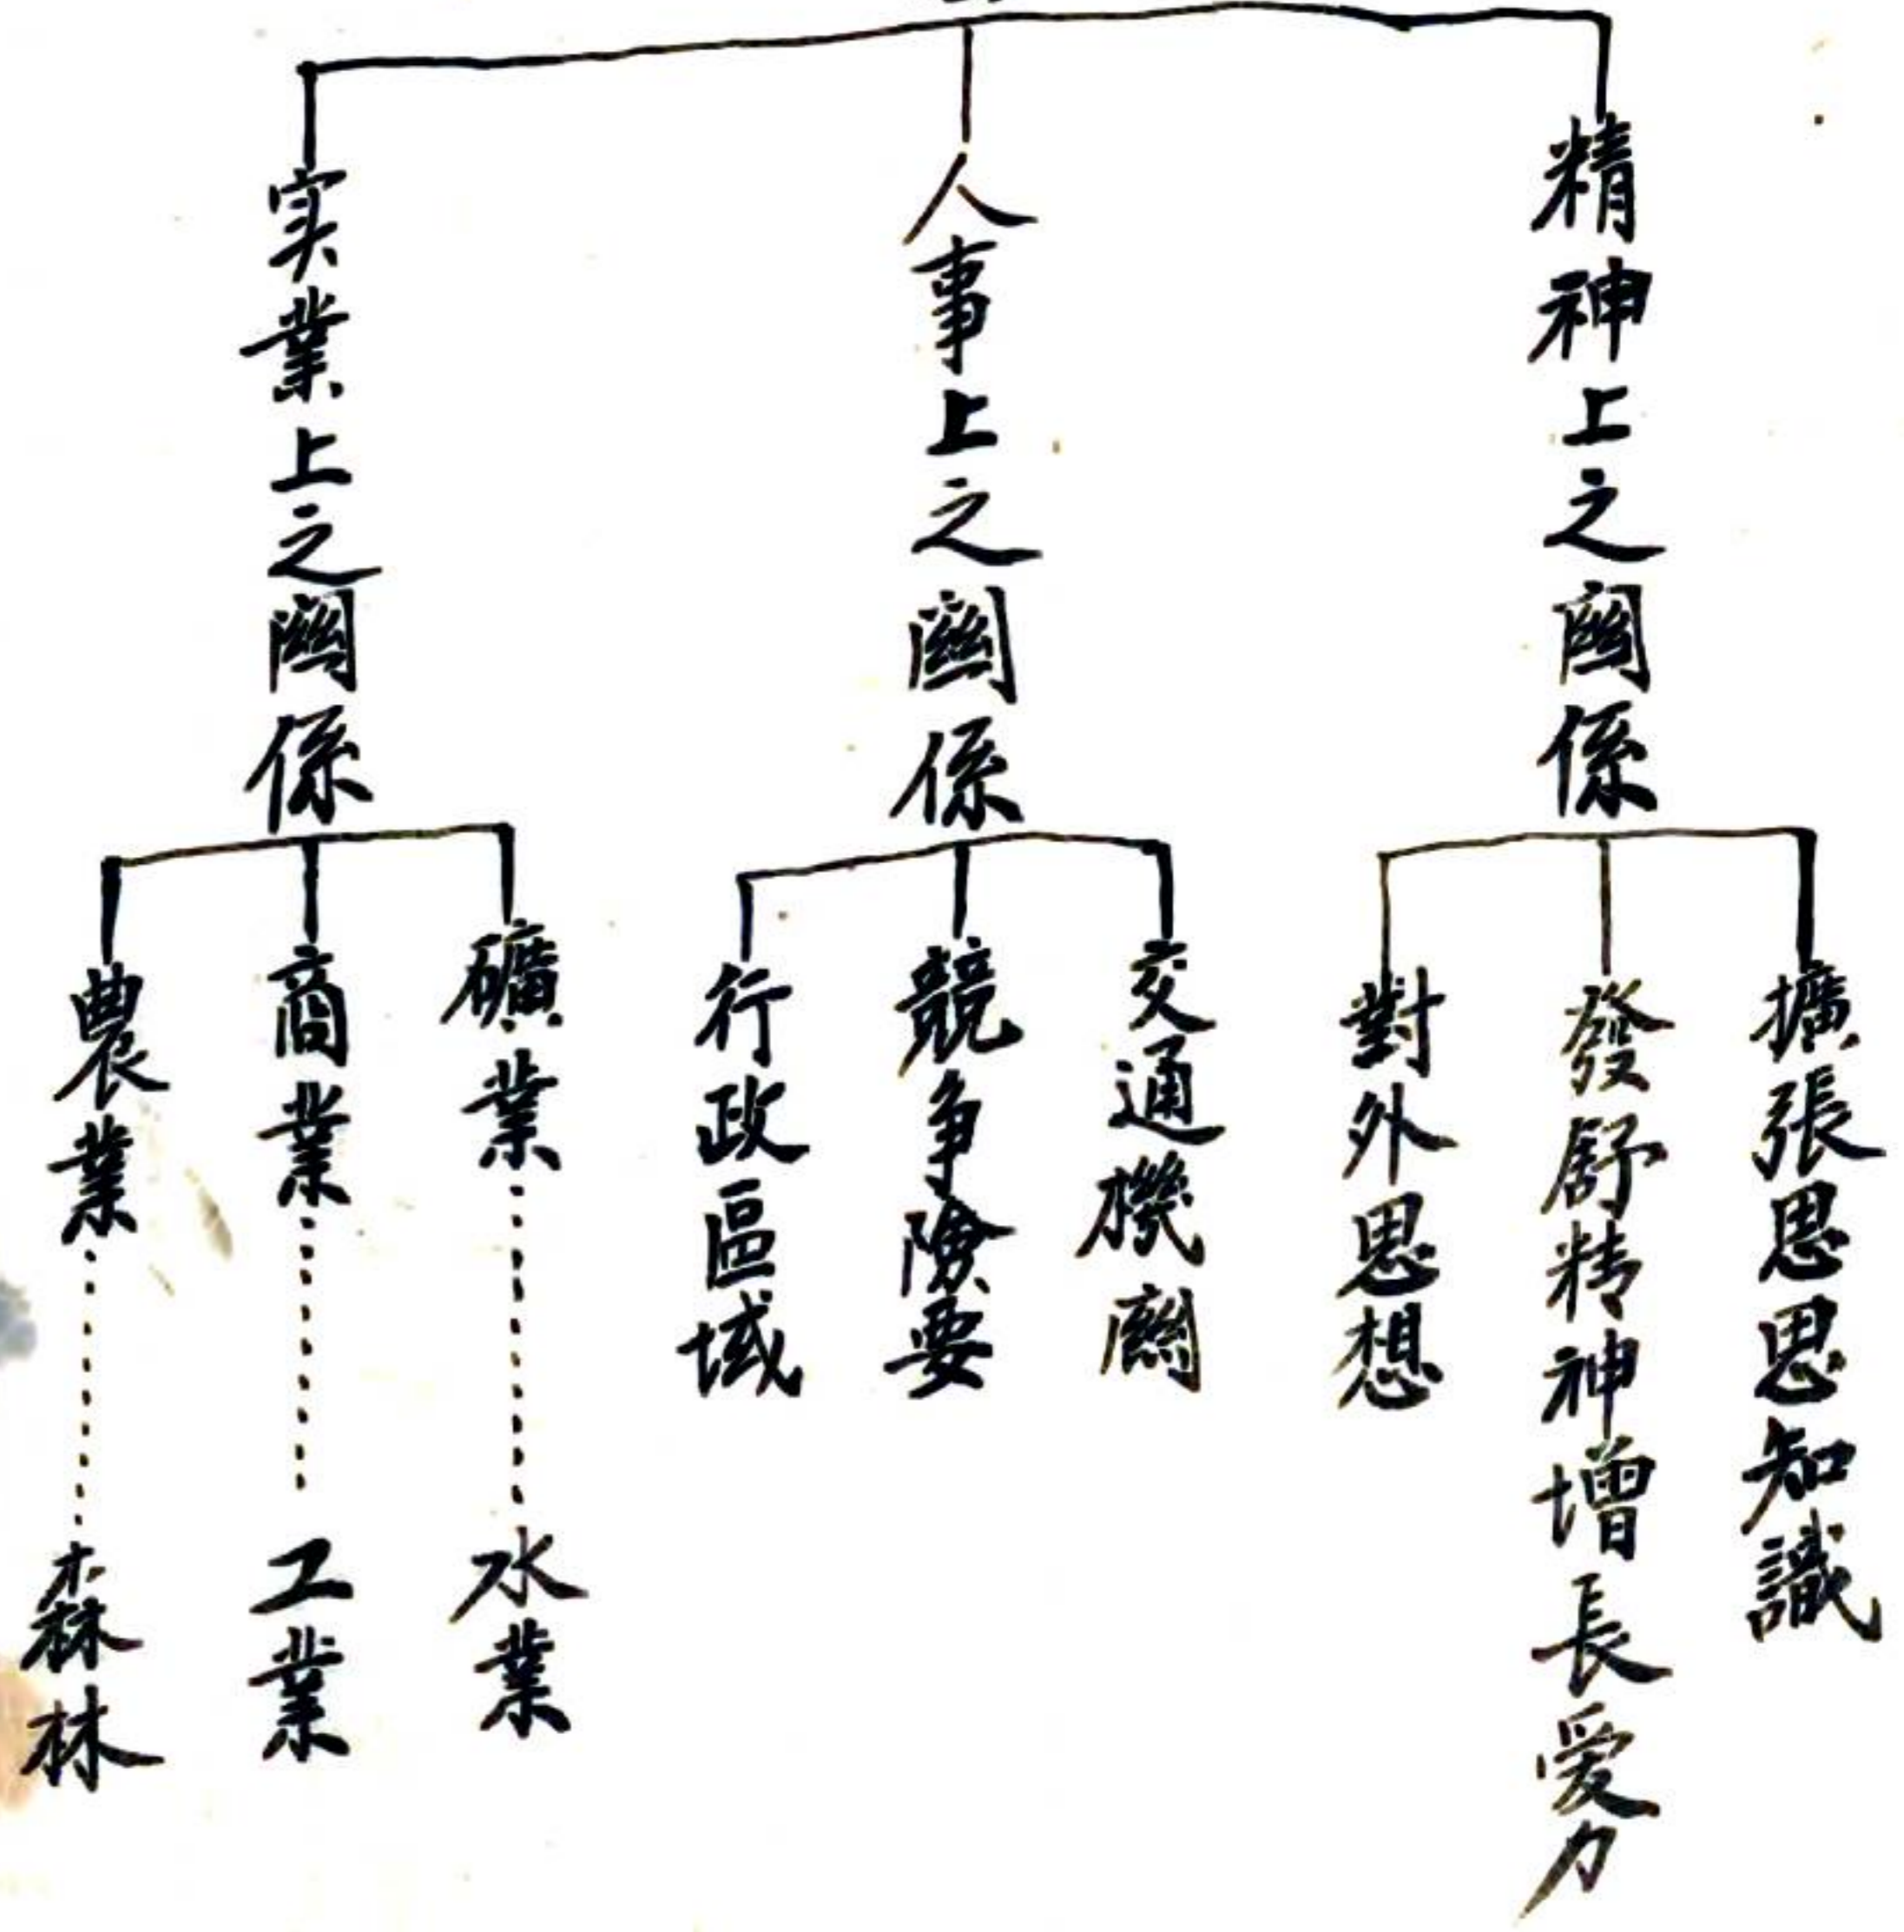 精神上之關係
擴張思思知識
發舒精神增長愛力
對外思想
人事上之關係
交通機關
競争險要
行政區域
实業上之關係
礦業……水業
商業……工業
農業……森林